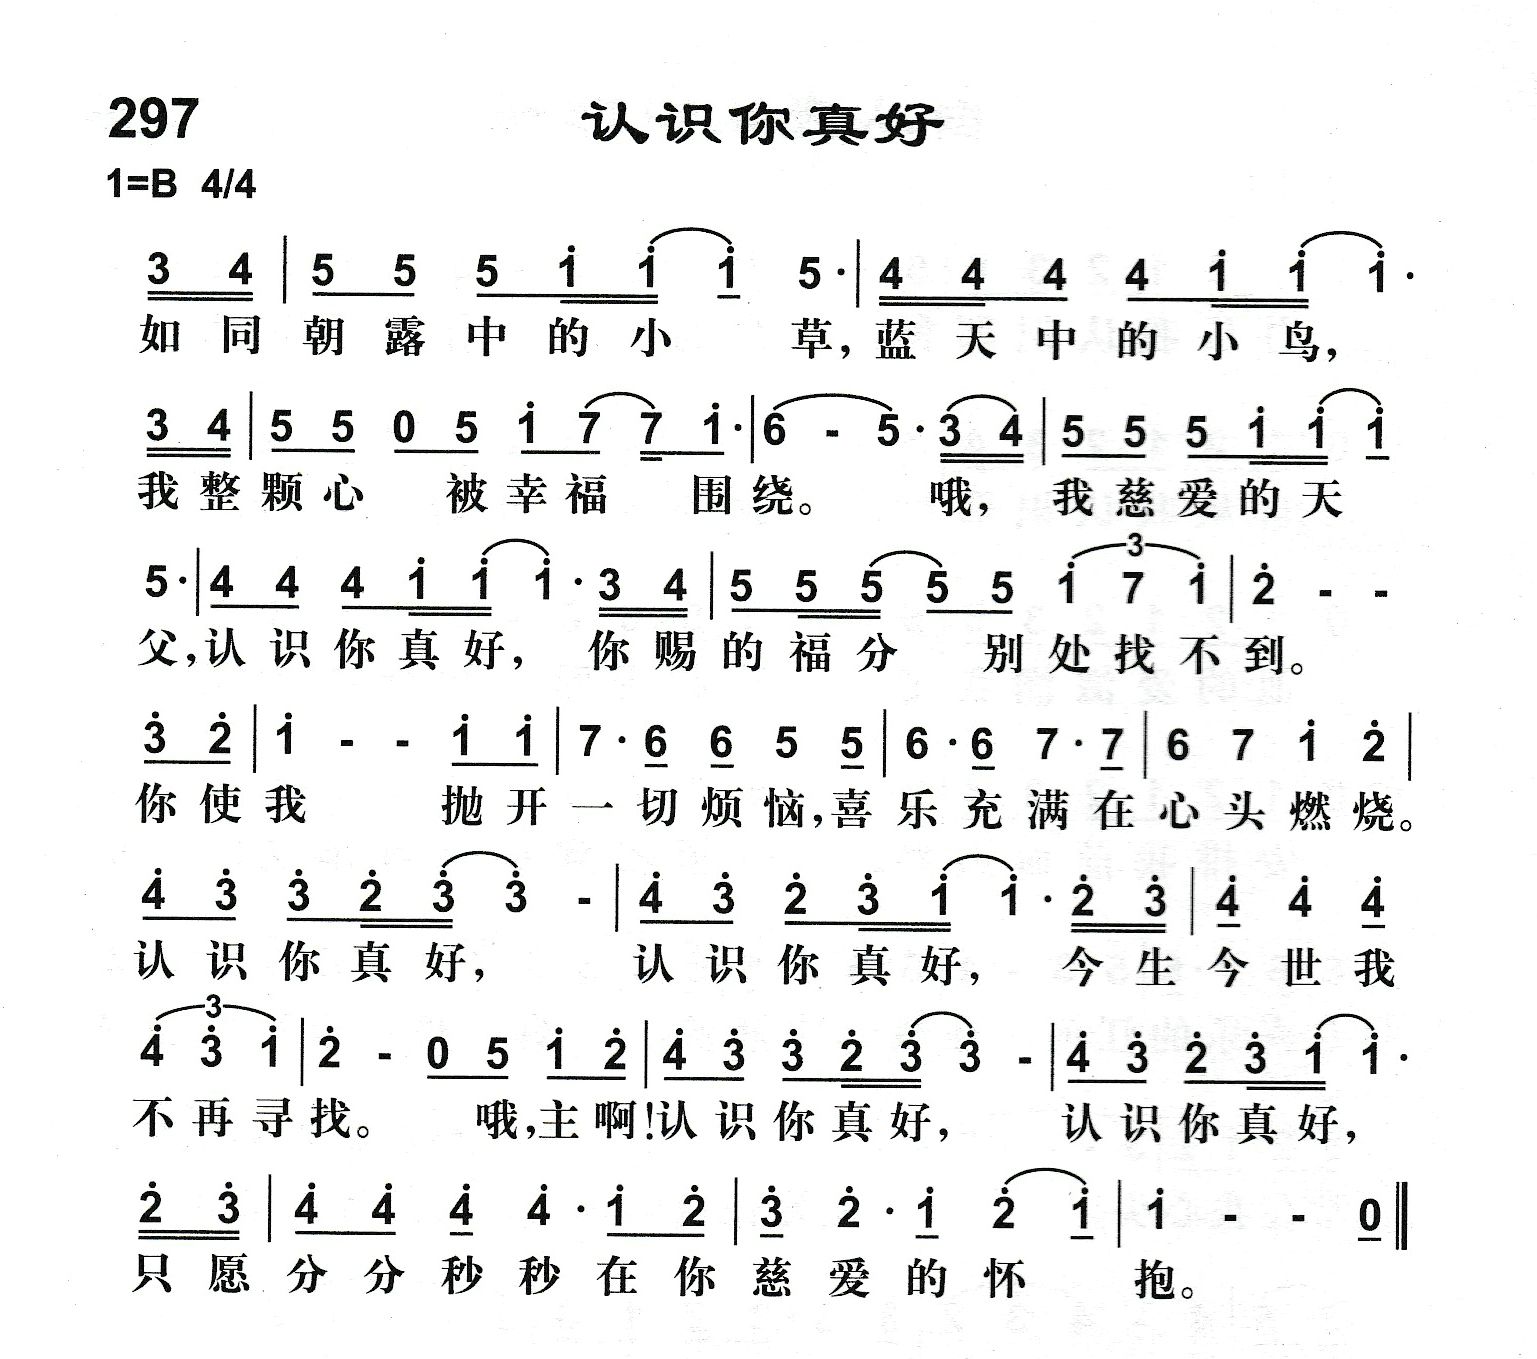 297 认识你真好
1=B 4/4
3 4 | 5 5 5 1̇ 1̇ 1̇ 5· | 4 4 4 4 1̇ 1̇ 1̇·
如同朝露中的小 草,蓝天中的小鸟,
3 4 | 5 5 0 5 1̇ 7 7 1̇· | 6 - 5· 3 4 | 5 5 5 1̇ 1̇ 1̇
我整颗心 被幸福 围绕。 哦, 我慈爱的天
3
5· | 4 4 4 1̇ 1̇ 1̇· 3 4 | 5 5 5 5 5 1̇ 7 1̇ | 2̇ - -
父,认识你真好, 你赐的福分 别处找不到。
3̇ 2̇ | 1̇ - - 1̇ 1̇ | 7· 6 6 5 5 | 6· 6 7· 7 | 6 7 1̇ 2̇ |
你使我 抛开一切烦恼,喜乐充满在心头燃烧。
4̇ 3̇ 3̇ 2̇ 3̇ 3̇ - | 4̇ 3̇ 2̇ 3̇ 1̇ 1̇· 2̇ 3̇ | 4̇ 4̇ 4̇
认识你真好, 认识你真好, 今生今世我
3
4̇ 3̇ 1̇ | 2̇ - 0 5 1̇ 2̇ | 4̇ 3̇ 3̇ 2̇ 3̇ 3̇ - | 4̇ 3̇ 2̇ 3̇ 1̇ 1̇·
不再寻找。 哦,主啊!认识你真好, 认识你真好,
2̇ 3̇ | 4̇ 4̇ 4̇ 4̇· 1̇ 2̇ | 3̇ 2̇· 1̇ 2̇ 1̇ | 1̇ - - 0 ‖
只愿分分秒秒在你慈爱的怀 抱。